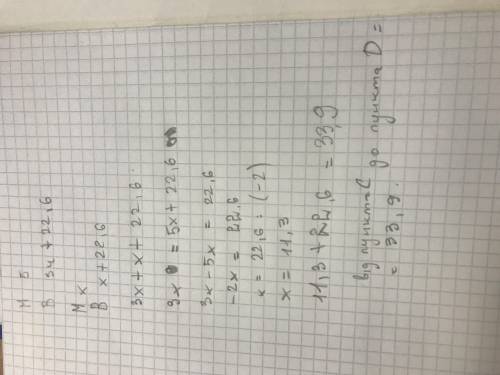 М 5
В 5x + 22,6
М x
В x + 22,6
3x + x + 22,6.
3x = 5x + 22,6
3x - 5x = 22,6
-2x = 22,6
x = 22,6 : (-2)
x = 11,3
11,3 + 22,6 = 33,9
від пункта С до пункта D =
= 33,9.